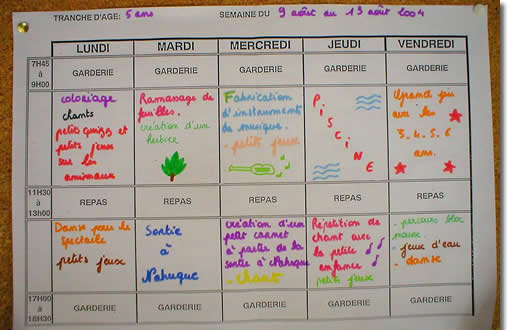 TRANCHE D'AGE: 5 ans SEMAINE DU 9 août au 13 août 2004
LUNDI MARDI MERCREDI JEUDI VENDREDI
7H45 à 9H00
GARDERIE GARDERIE GARDERIE GARDERIE GARDERIE
coloriage
chants
petits quizz et
petits jeux
sur les
animaux
Ramassage de
feuilles.
création d'un
herbier
Fabrication
d'instruments
de musique.
- petits jeux
PISCINE
Grand jeu
avec les
3. 4. 5. 6
ans.
11H30 à 13H00
REPAS REPAS REPAS REPAS REPAS
Danse pour le
spectacle
petits jeux
Sortie
à
Nahuque
création d'un
petit carnet
à partir de la
sortie à Nahuque
- chant
Répétition de
chant avec
la petite
enfance
petits jeux
- parcours bloc
mousse.
- jeux d'eau
- danse
17H00 à 18H30
GARDERIE GARDERIE GARDERIE GARDERIE GARDERIE